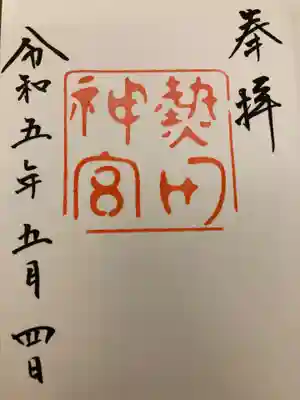 奉拝
熱田
神宮
令和五年五月四日